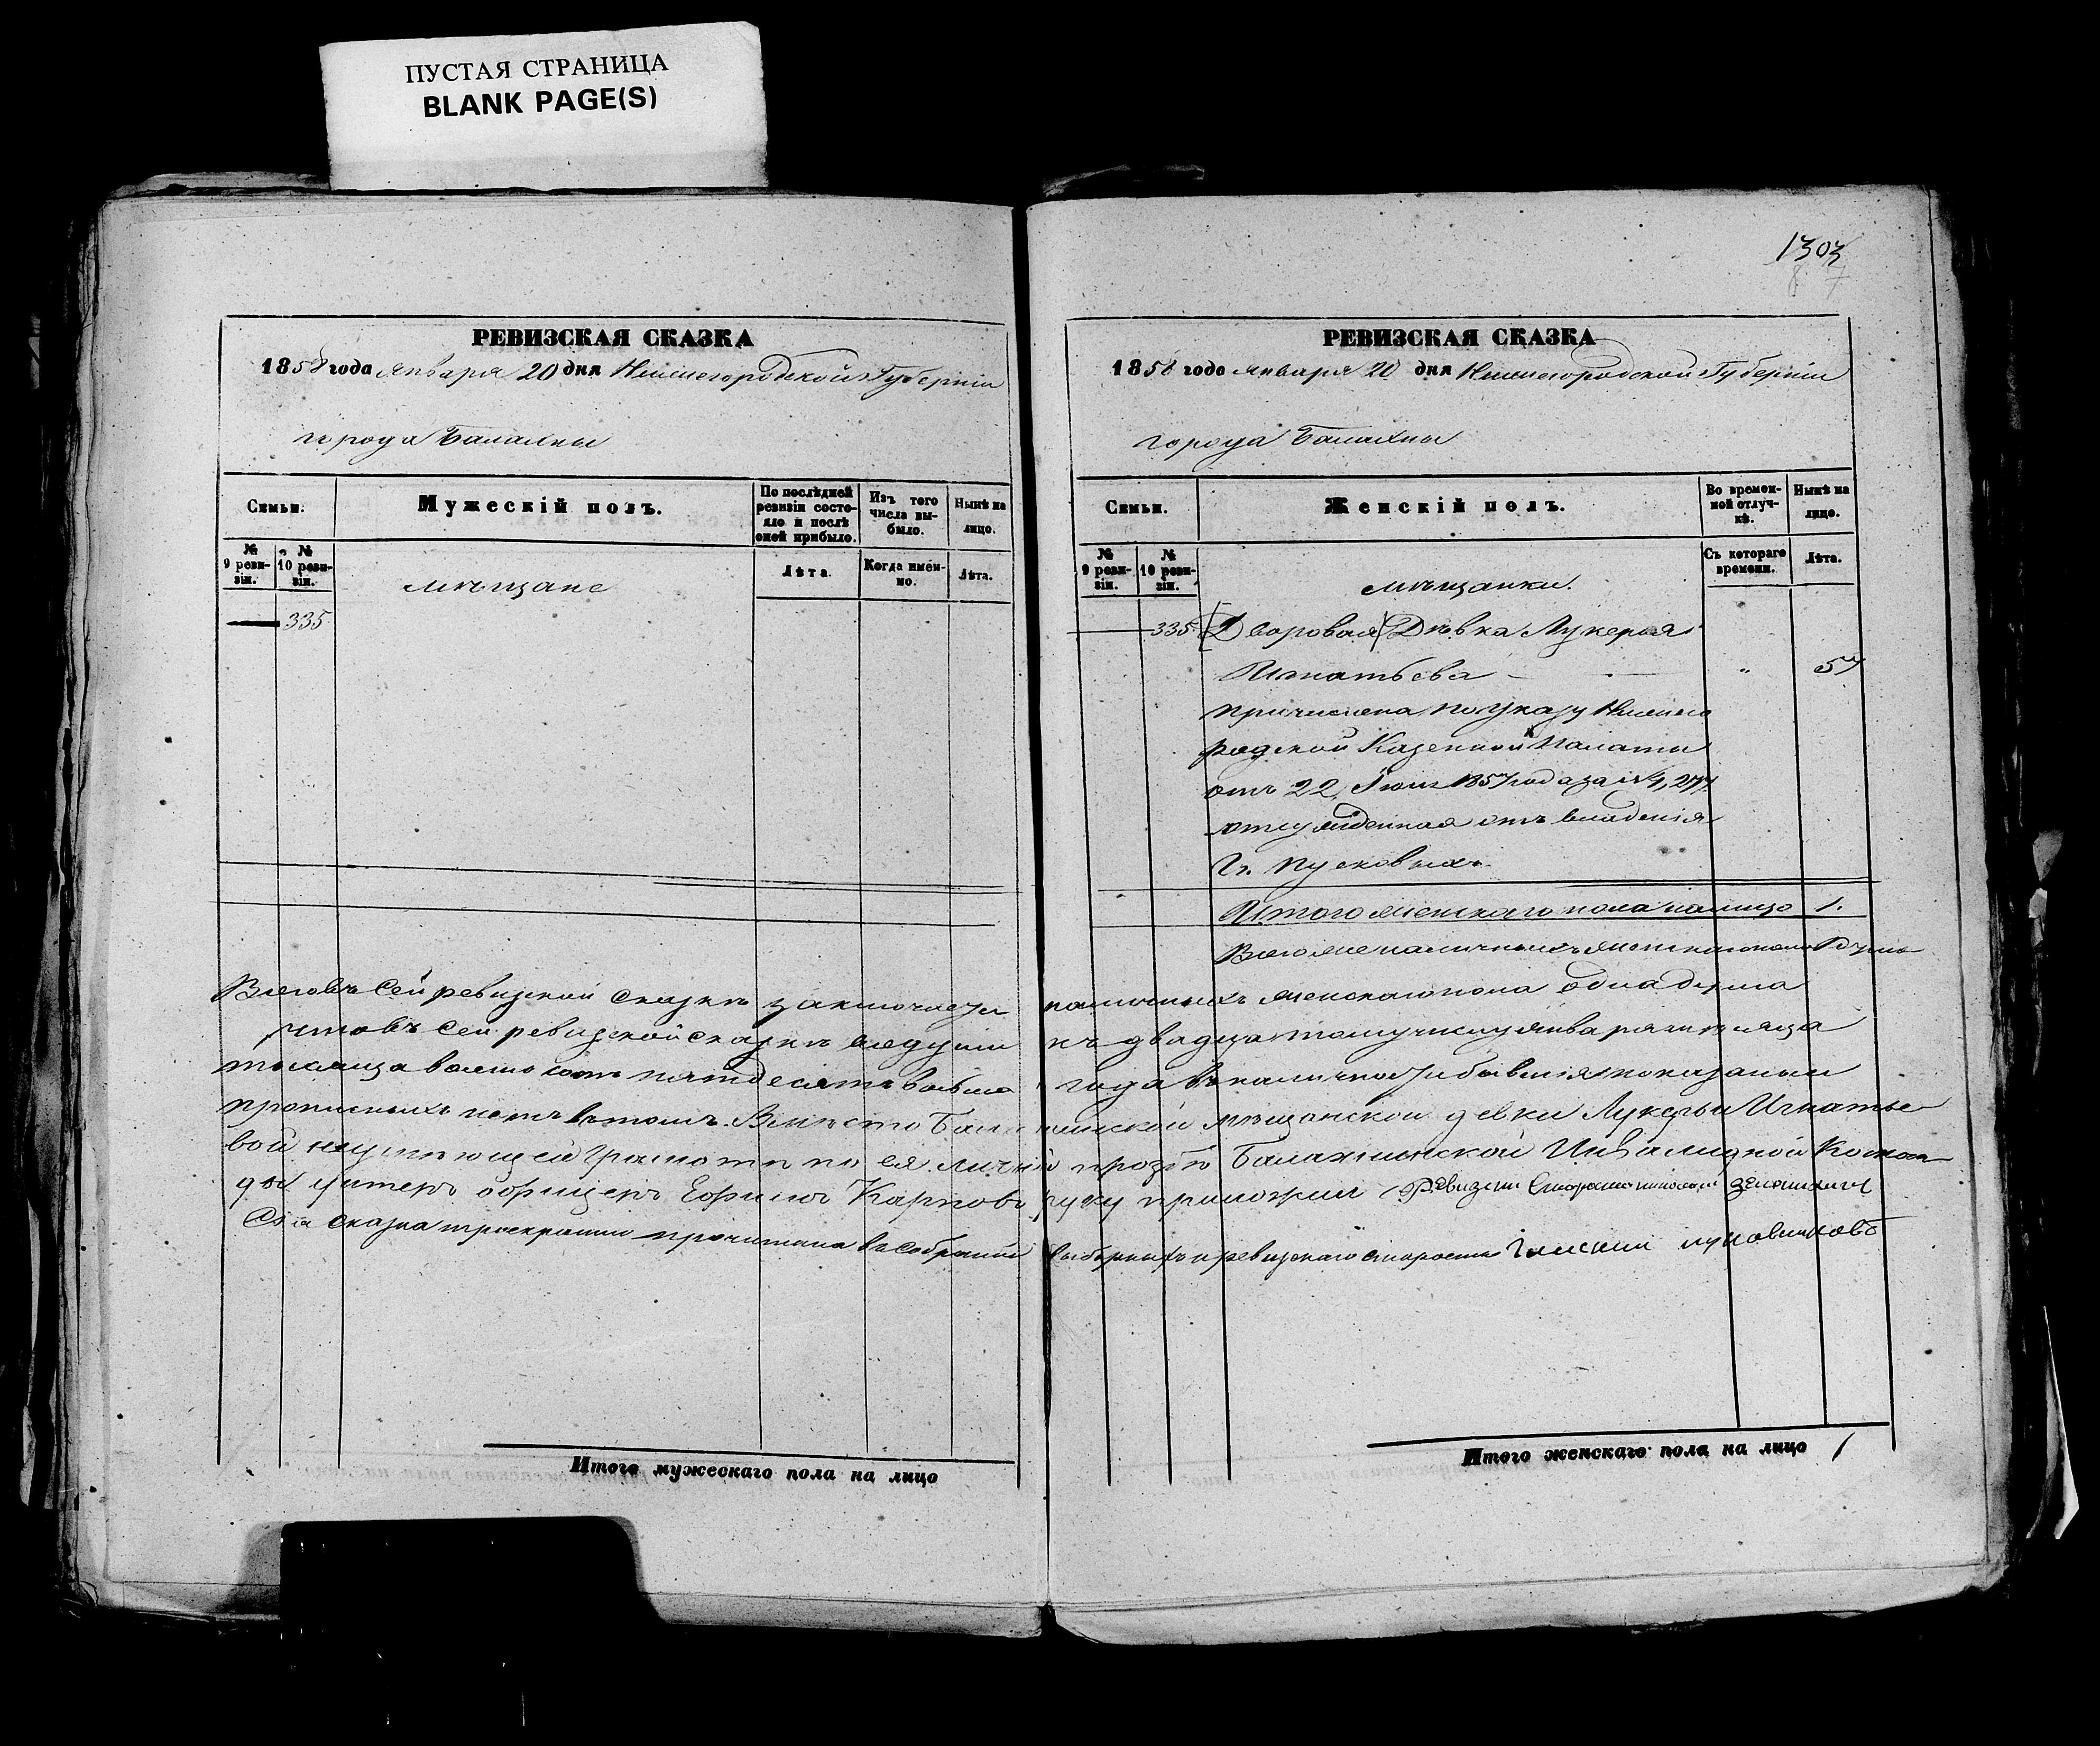 ПУСТАЯ СТРАНИЦА
BLANK PAGE(S)
РЕВИЗСКАЯ СКАЗКА
1858 года Января 20 дня Нижегородской Губерніи
города Балахны
Семьи.
Мужескій полъ.
По послѣдней ревизіи состояло и послѣ оней прибыло.
Изъ того числа выбыло.
Нынѣ на лицо.
№ 9 ревизіи.
№ 10 ревизіи.
мѣщане
Лѣта.
Когда именно.
Лѣта.
335
1303
РЕВИЗСКАЯ СКАЗКА
1858 годо января 20 дня Нижегородской Губерніи
города Балахны
Семьи.
Женскій полъ.
Во временной отлучкѣ.
Нынѣ на лицо.
№ 9 ревизіи.
№ 10 ревизіи.
мѣщанки.
Съ котораго времени.
Лѣта.
335 Дворовая Дѣвка Лукерья
Игнатьева " 57
причислена по указу Нижего
родской Казенной Палаты
отъ 22 Іюля 1857 года за № 4,277
отсужденная отъ владенія
Гг. Пусковыхъ.
Итого женскаго пола налицо 1.
Всего же наличныхъ женскаго пола 1 душа
Всего въ сей ревизской сказкѣ заключается наличныхъ женскаго пола одна душа
что въ сей ревизской сказкѣ къ двадцатому числу января мѣсяца
тысяща восемь сотъ пятдесятъ восьмо года въ наличности бывшія показаны и
прописныхъ нетъ въ томъ. Вместо Балахнинской мѣщанской девки Лукерьи Игнатье
вой неумѣющей Грамоте по ея личной прозьбе Балахнинской Инвалидной Коман
ды унтеръ офицеръ Ефимъ Карповъ руку приложилъ Ревизски Староста
Сія сказка троекратно прочитана въ собраніи выборныхъ и ревизскаго старосты
Итого мужескаго пола на лицо
Итого женскаго пола на лицо 1